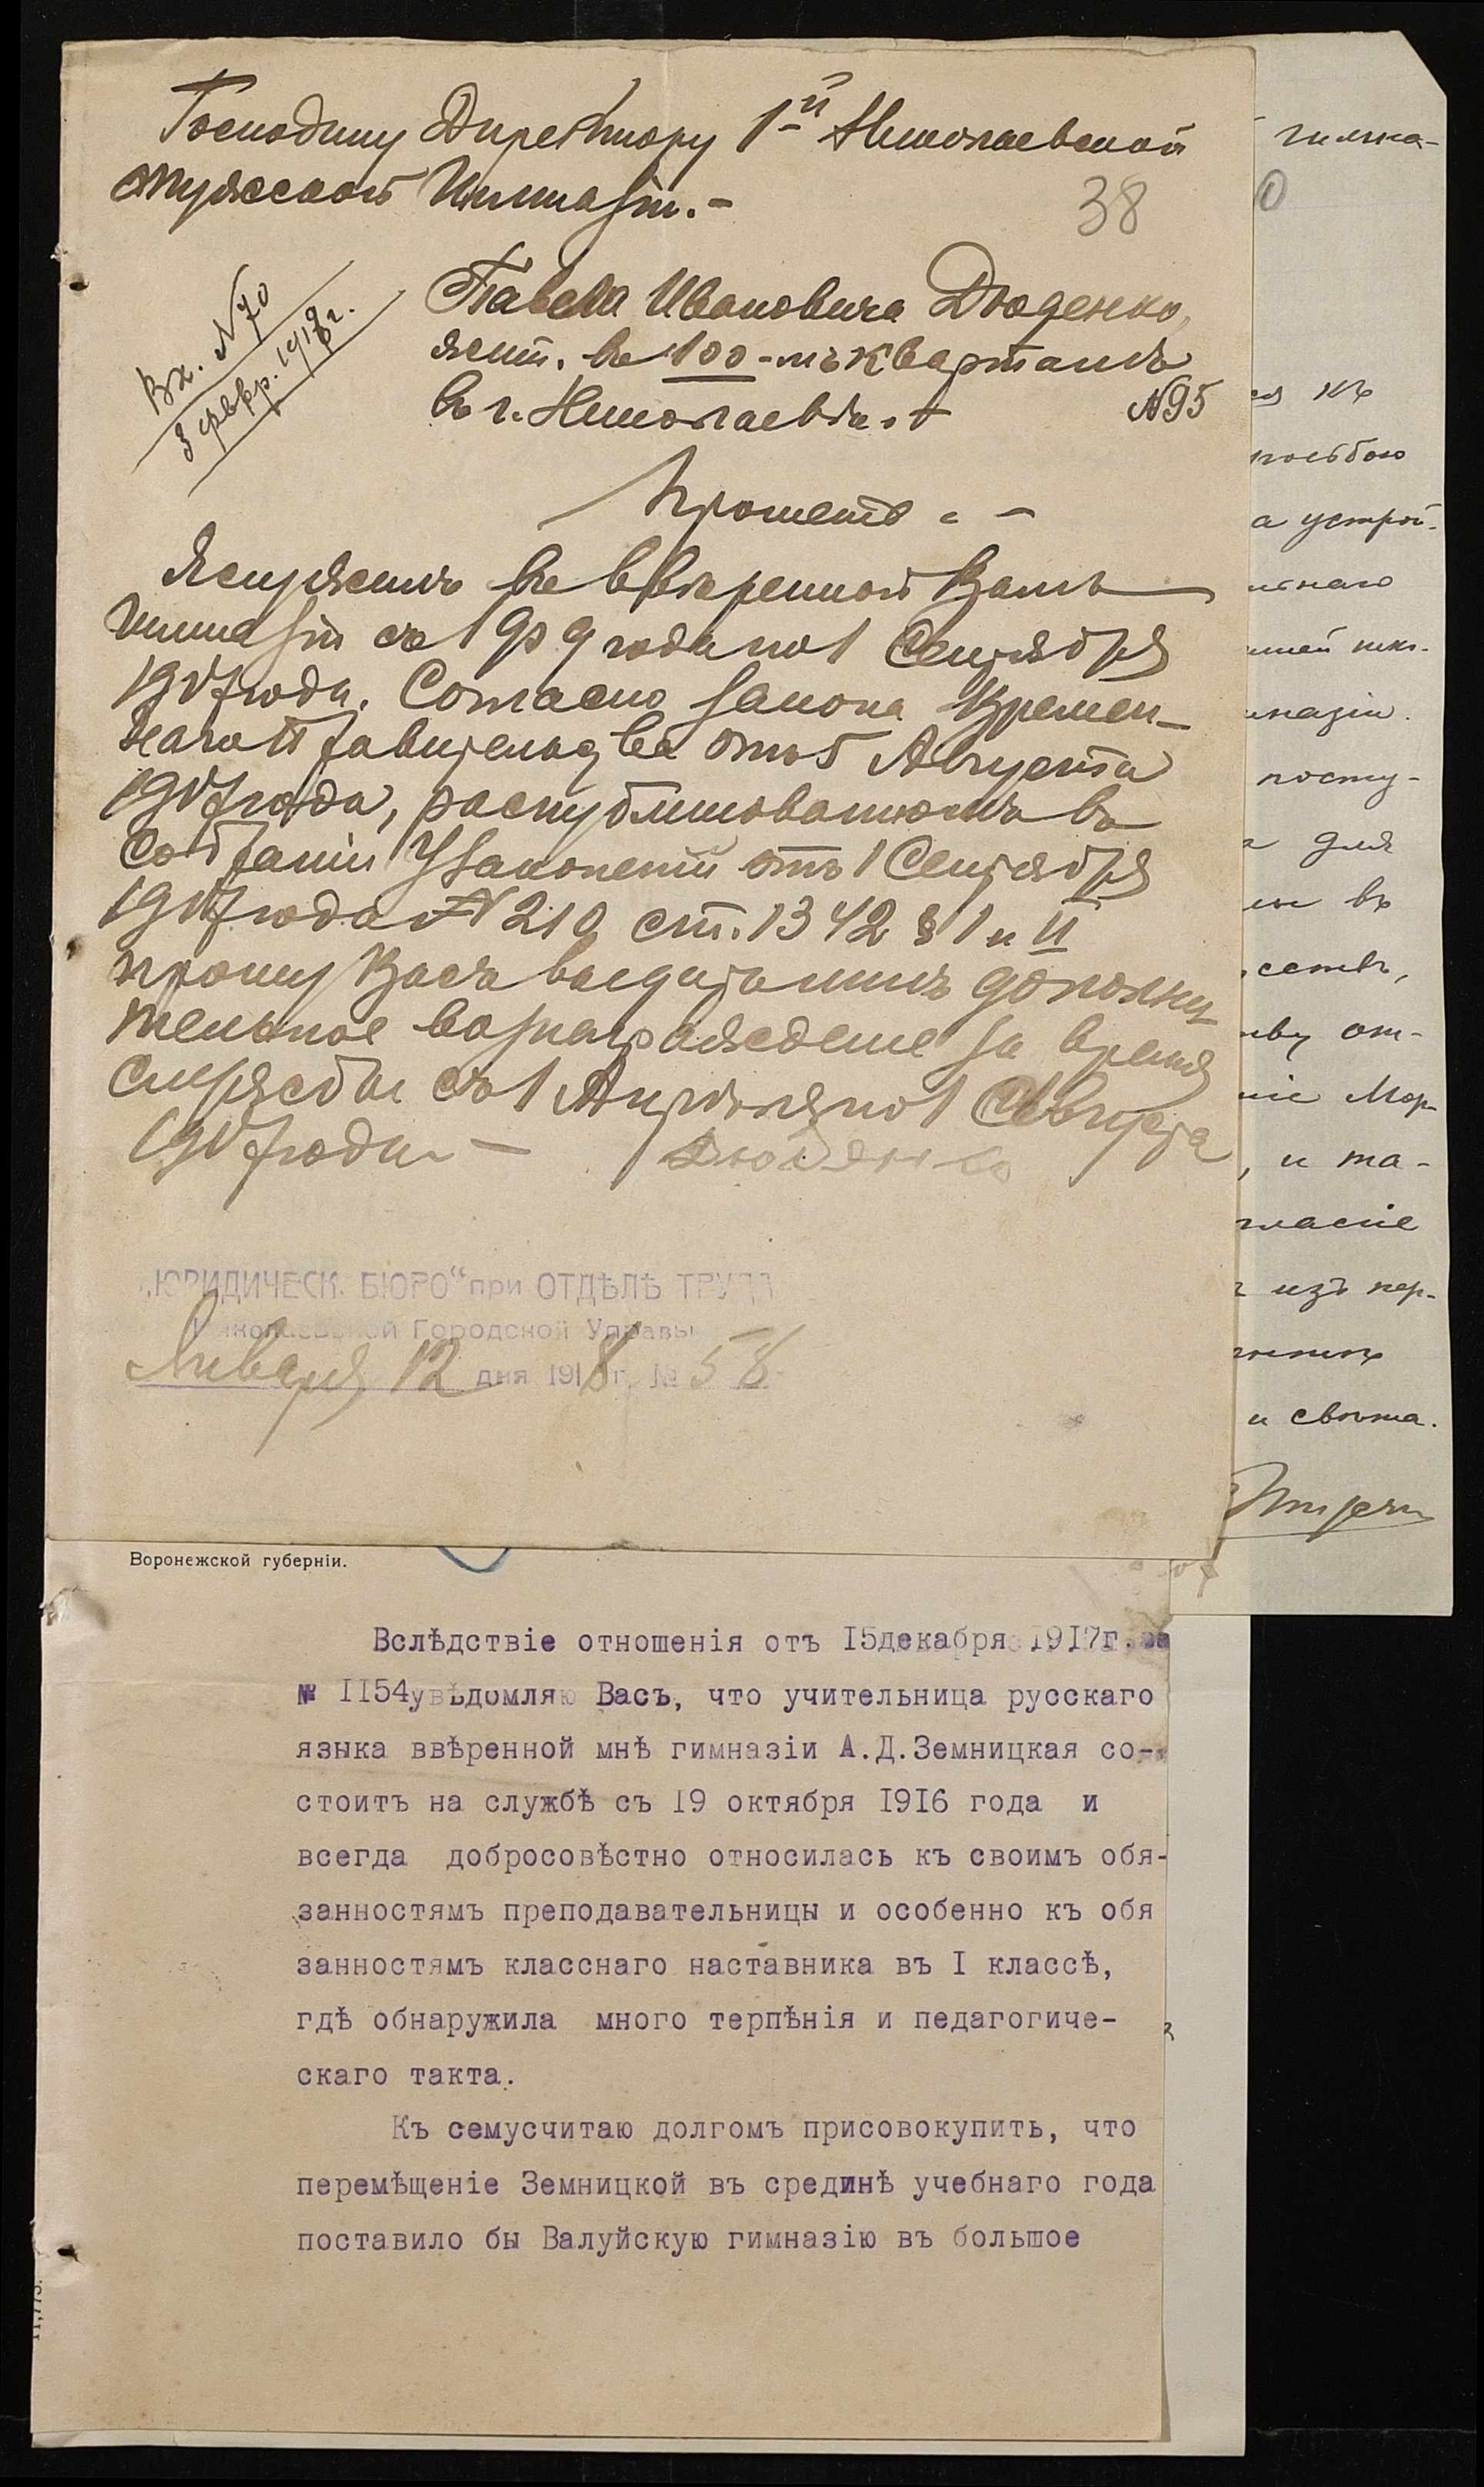 Господину Директору 1й Николаевской
мужской Гимназіи.-
38
Вх. N70
3 февр. 1918 г.
Павла Ивановича Дюденко,
жит. въ 100-мъ кварталѣ
N95
въ г. Николаевѣ.
Прошеніе.-
Я служилъ въ ввѣренной Вамъ
Гимназіи съ 1909 года по 1 Сентября
1917 года. Согласно закона Времен-
наго Правительства отъ 5 Августа
1917 года, распубликованномъ въ
Собраніи Узаконеній отъ 1 Сентября
1917 года N 210 ст. 1342 § 1 и II
прошу Васъ выдать мнѣ дополни-
тельное вознагражденіе за время
службы съ 1 Апрѣля по 1
1917 года.- Дюденко
„ЮРИДИЧЕСК. БЮРО“ при ОТДѢЛѢ ТРУДА
Николаевской Городской Управы
Января 12 дня 1918 г. № 58
гимна-
0
ся къ
просьбою
а устрой-
наго
шей
посту-
для
въ
от-
Мор-
, и та-
гласіе
изъ пер-
и свѣта.
Воронежской губерніи.
Вслѣдствіе отношенія отъ I5декабря I9I7г. за
№ II54увѣдомляю Васъ, что учительница русскаго
языка ввѣренной мнѣ гимназіи А.Д.Земницкая со-
стоитъ на службѣ съ I9 октября I9I6 года и
всегда добросовѣстно относилась къ своимъ обя-
занностямъ преподавательницы и особенно къ обя
занностямъ класснаго наставника въ I классѣ,
гдѣ обнаружила много терпѣнія и педагогиче-
скаго такта.
Къ семусчитаю долгомъ присовокупить, что
перемѣщеніе Земницкой въ срединѣ учебнаго года
поставило бы Валуйскую гимназію въ большое